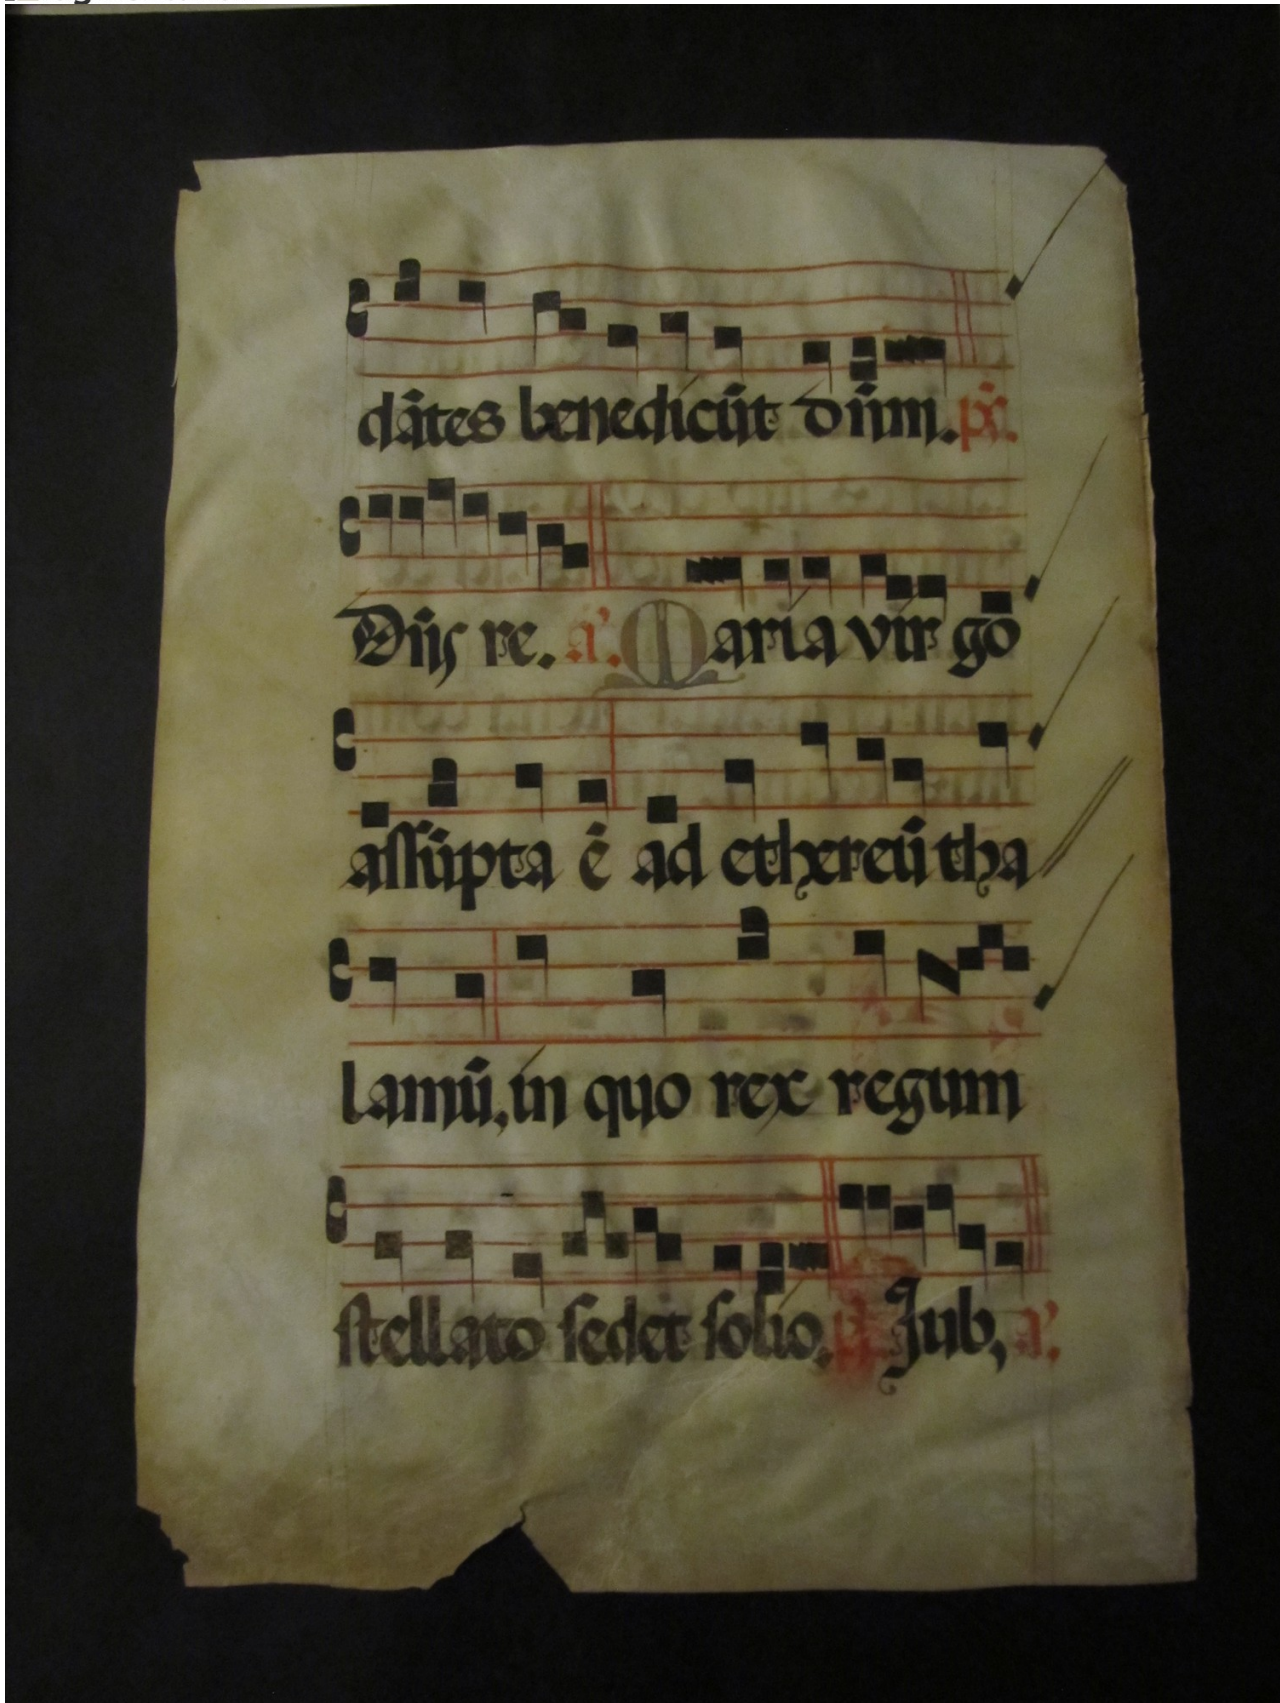 dãtes benedicũt dñm. ps.
Dñs re. a. Maria virgo
assũpta ẽ ad ethereũ tha
lamũ, in quo rex regum
stellato sedet solio. ps. Jub, a.